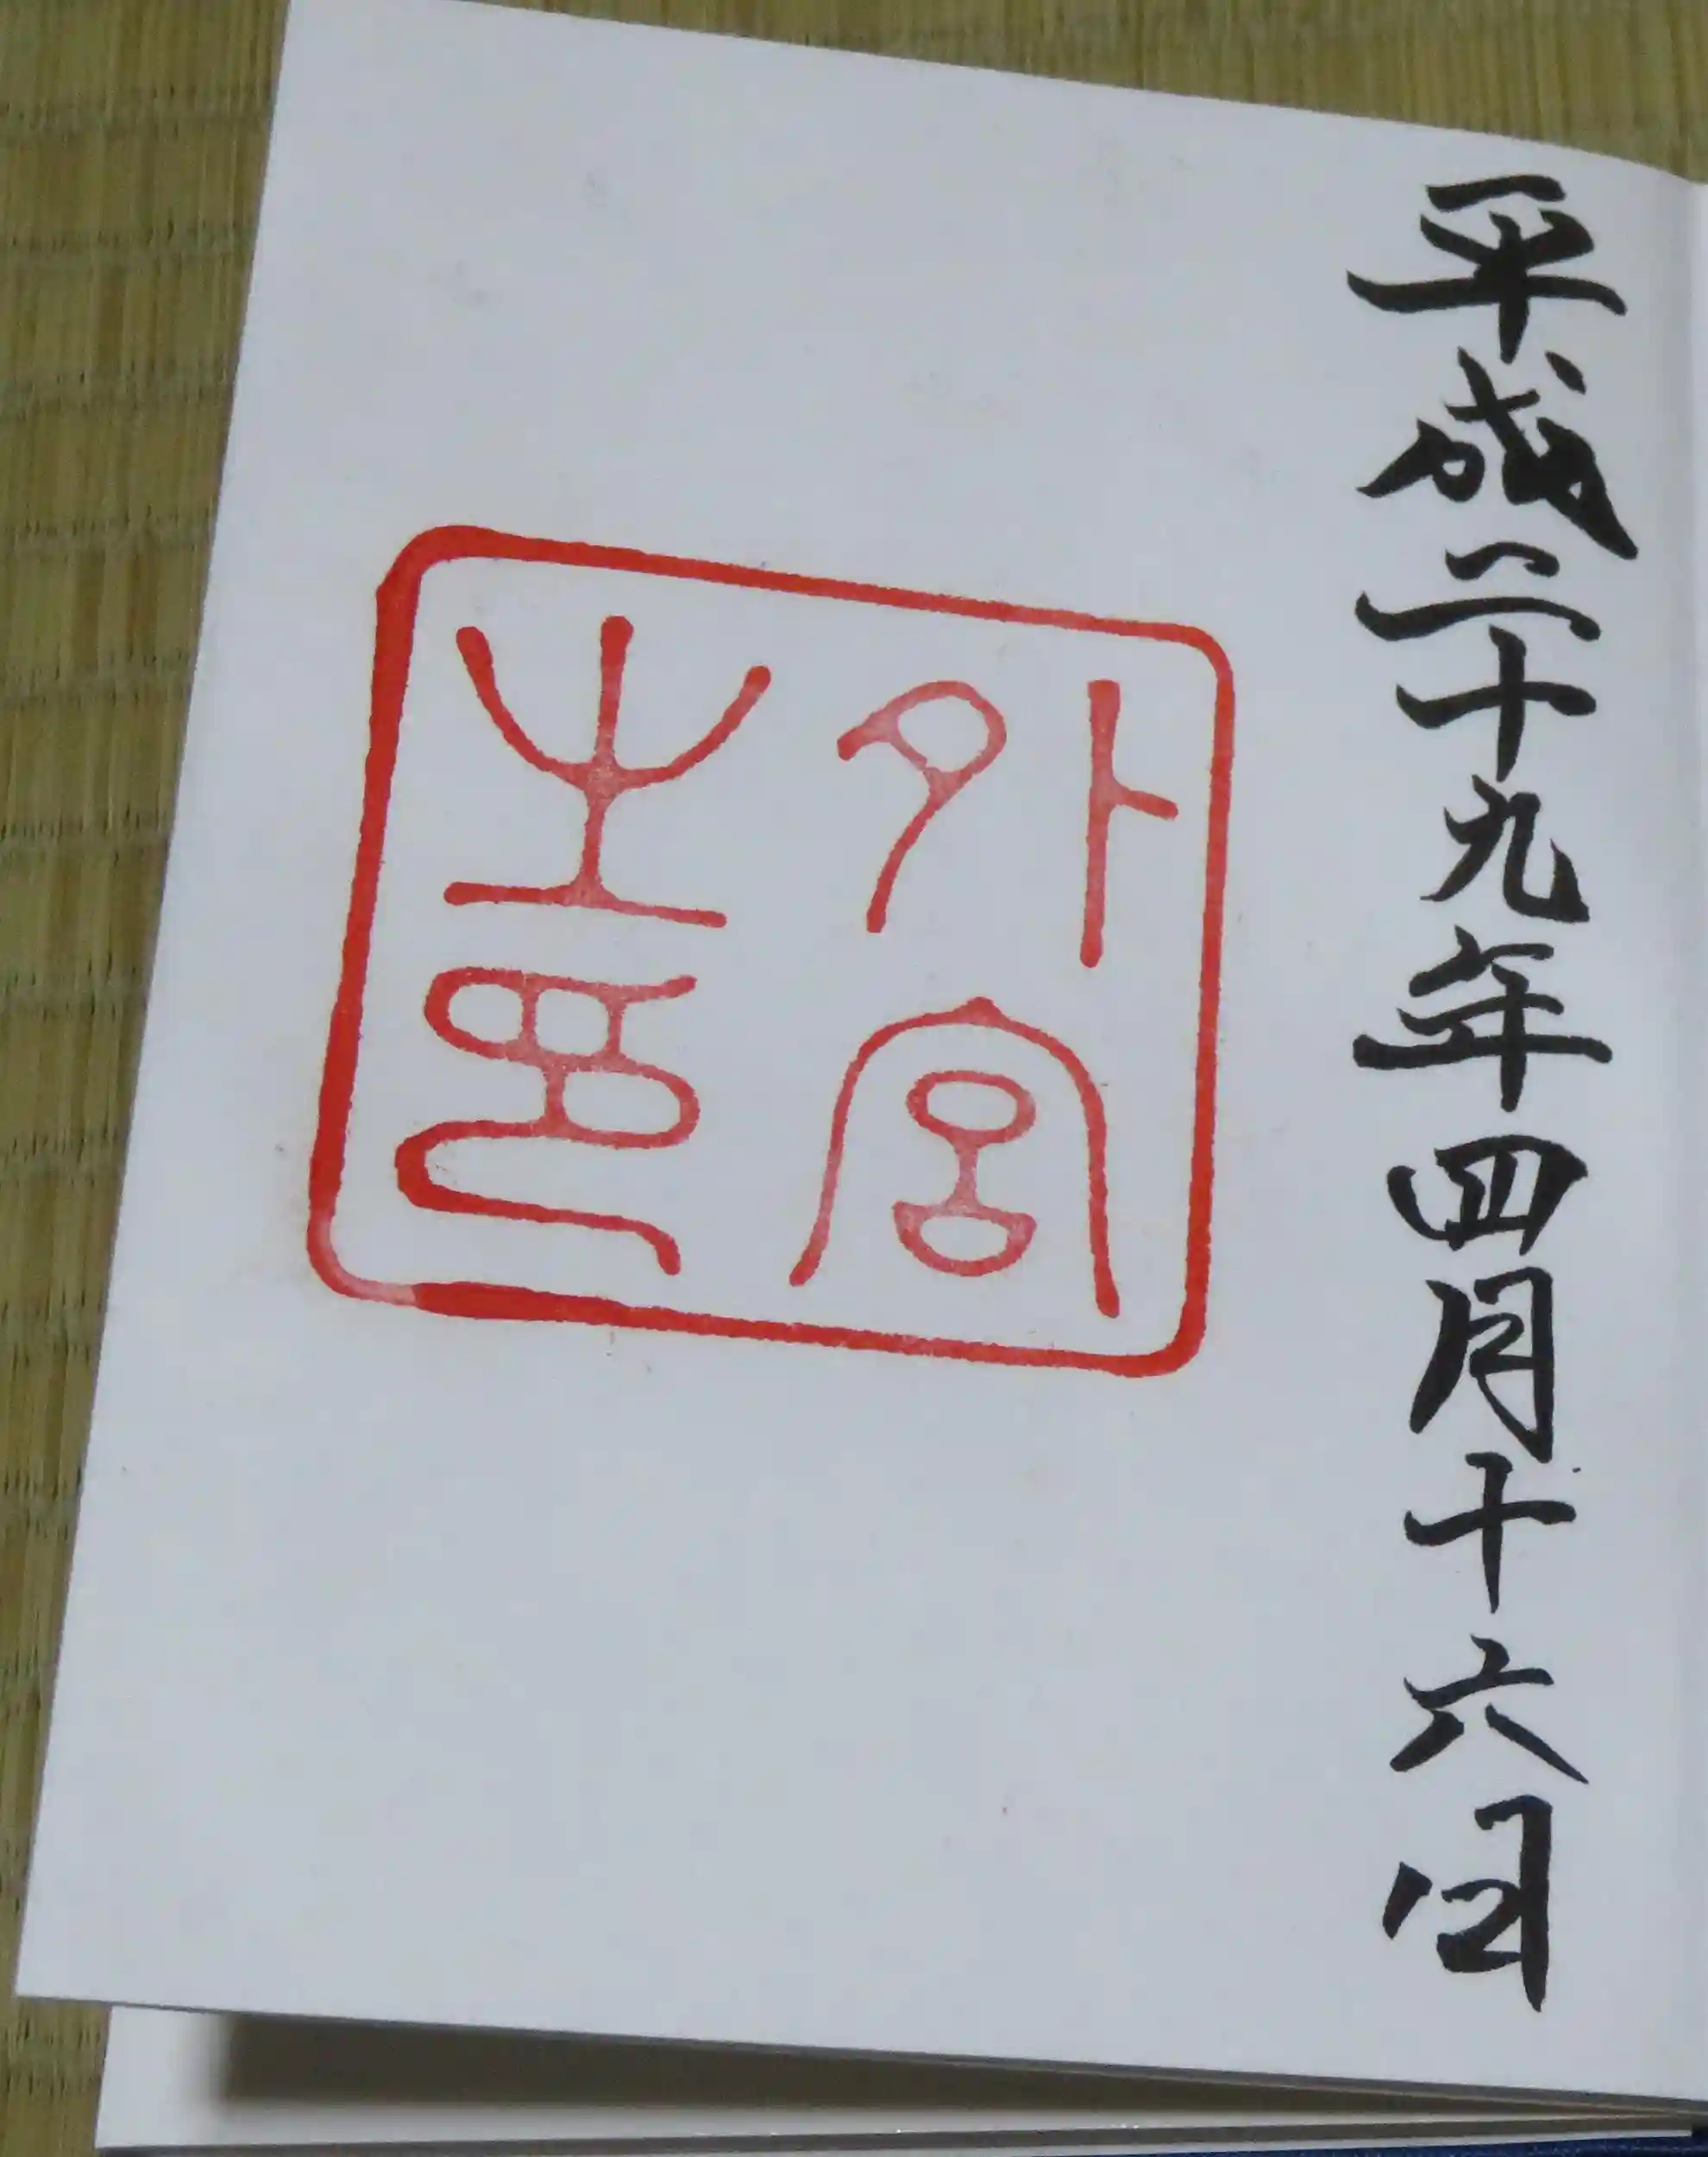 平成二十九年四月十六日
外宮
之印